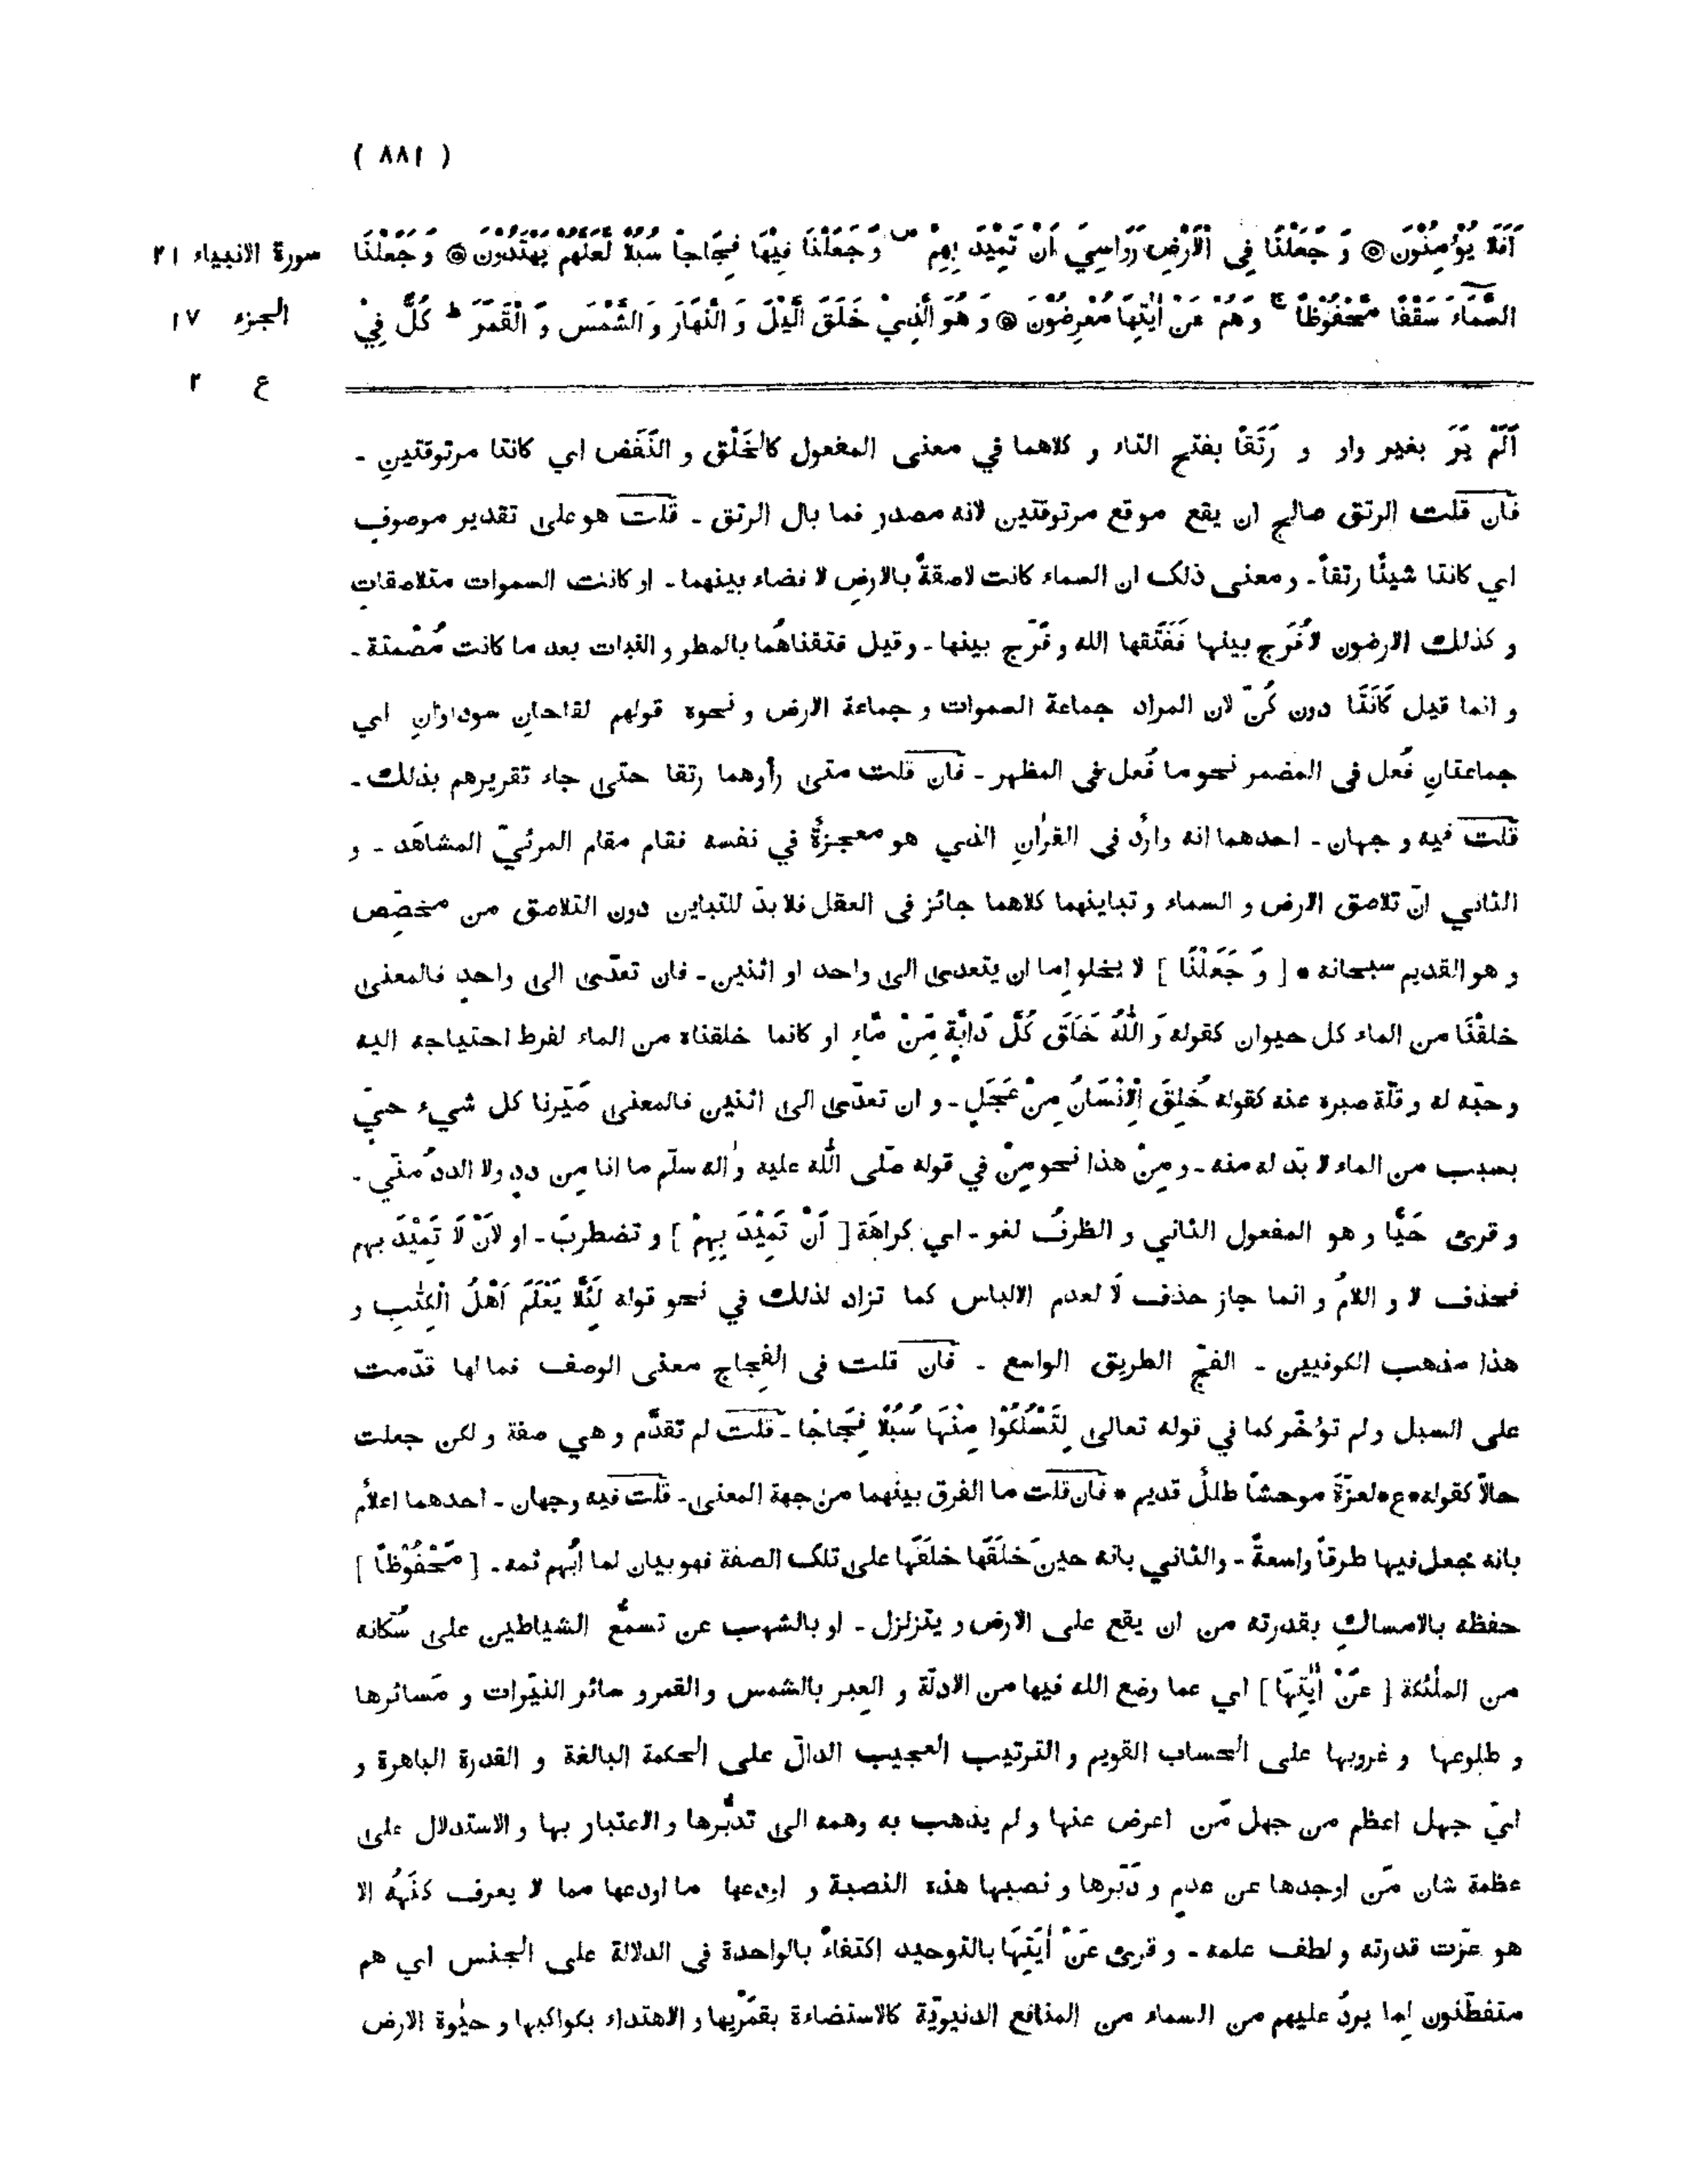 ( ٨٨١ )
سورة الانبياء ٢١
الجزء ١٧
ع ٢
اَفَلَا يُؤْمِنُوْنَ ۞ وَ جَعَلْنَا فِى الْاَرْضِ رَوَاسِيَ اَنْ تَمِيْدَ بِهِمْ ص وَ جَعَلْنَا فِيْهَا فِجَاجاً سُبُلًا لَّعَلَّهُمْ يَهْتَدُوْنَ ۞ وَ جَعَلْنَا
السَّمَآءَ سَقْفًا مَّحْفُوْظاً ج وَ هُمْ عَنْ اٰيٰتِهَا مُعْرِضُوْنَ ۞ وَ هُوَ الَّذِيْ خَلَقَ الَّيْلَ وَ النَّهَارَ وَ الشَّمْسَ وَ الْقَمَرَ ط كُلٌّ فِيْ
اَلَمْ يَرَ بغير واو و رَتَقاً بفتح التاء و كلاهما في معنى المفعول كالخَلْق و النَّفَض اي كانتا مرتوقتينِ -
فان قلت الرتق صالح ان يقع موقع مرتوقتين لانه مصدر فما بال الرتق - قلت هو على تقدير موصوف
اي كانتا شيئًا رتقاً - و معنى ذلك ان السماء كانت لاصقةً بالارضِ لا فضاء بينهما - او كانت السموات متلاصقاتٍ
و كذلك الارضون لا فُرَج بينها فَفَتَقها الله و فَرّج بينها - و قيل ففتقناهُما بالمطر و النبات بعد ما كانت مُصْمتة -
و انما قيل كَانَتَا دون كُنّ لان المراد جماعة السموات و جماعة الارض و نحوه قولهم لقاحانِ سوداوانِ اي
جماعتانِ فُعل فى المضمر نحو ما فُعل فى المظهر - فان قلت متى رأوهما رتقا حتى جاء تقريرهم بذلك -
قلت فيه وجهان - احدهما انه واردٌ فى القرٰانِ الذي هو معجزةٌ في نفسه فقام مقام المرئيّ المشاهَد - و
الثاني انّ تلاصق الارض و السماء و تباينهما كلاهما جائز فى العقل فلا بدّ للتباين دون التلاصق من مخصِّصٍ
و هو القديم سبحانه • [ وَ جَعَلْنَا ] لا يخلو اما ان يتعدى الى واحد او اثنين - فان تعدّى الى واحدٍ فالمعنى
خلقْنَا من الماء كل حيوان كقوله وَ اللّٰهُ خَلَقَ كُلَّ دَابَّةٍ مِّنْ مَّاءٍ او كانما خلقناه من الماء لفرط احتياجه اليه
و حبّه له و قلّة صبره عنه كقوله خُلِقَ الْاِنْسَانُ مِنْ عَجَلٍ - و ان تعدّى الى اثنين فالمعنى صَيّرنا كل شيء حيّ
بسبب من الماء لا بدّ له منه - و مِنْ هذا نحو مِنْ في قوله صلّى اللّٰه عليه و اٰله سلّم ما انا مِن ددٍ ولا الددُ منّي -
و قرئ حَيًّا و هو المفعول الثاني و الظرفُ لغو - اي كراهَةَ [ اَنْ تَمِيْدَ بِهِمْ ] و تضطربَ - او لِاَنْ لَّا تَمِيْدَ بهم
فحذف لا و اللامُ و انما جاز حذف لَا لعدم الالباس كما تزاد لذلك في نحو قوله لِئَلَّا يَعْلَمَ اَهْلُ الْكِتٰبِ و
هذا مذهب الكوفيين - الفجّ الطريق الواسع - فان قلت فى الفِجاج معنى الوصف فما لها قدّمت
على السبل ولم تؤخّر كما في قوله تعالى لِتَسْلُكُوْا مِنْهَا سُبُلًا فِجَاجًا - قلت لم تقدَّم و هي صفة و لكن جعلت
حالاً كقوله • ع • لعزّةَ موحشاً طللٌ قديم • فان قلت ما الفرق بينهما من جهة المعنى - قلت فيه وجهان - احدهما اعلامٌ
بانه جعل فيها طرقاً واسعةً - والثاني بانه حينَ خلقَها خلقَها على تلك الصفة فهو بيان لما اُبهم ثمه - [ مَحْفُوْظاً ]
حفظه بالامساكِ بقدرته من ان يقع على الارض و يتزلزل - او بالشهب عن تسمّع الشياطين على سُكّانه
من الملٰئكة [ عَنْ اٰيٰتِهَا ] اي عما وضع الله فيها من الادلّة و العِبر بالشمس والقمر و سائر النيّرات و مسائرها
و طلوعها و غروبها على الحساب القويم و الترتيب العجيب الدالّ على الحكمة البالغة و القدرة الباهرة و
ايّ جهل اعظم من جهل مَن اعرض عنها و لم يذهب به وهمه الى تدبُّرها و الاعتبار بها و الاستدلال على
عظمة شان مَن اوجدها عن عدمٍ و دَبّرها و نصبها هذه النصبة و اودعها ما اودعها مما لا يعرف كنهَهُ الا
هو عزّت قدرته و لطف علمه - و قرئ عَنْ اٰيَتِهَا بالتوحيد اكتفاءً بالواحدة فى الدلالة على الجنس اي هم
متفطّنون لِما يردُ عليهم من السماء من المنافع الدنيويّة كالاستضاءة بقمَرَيها و الاهتداء بكواكبها و حيٰوة الارض